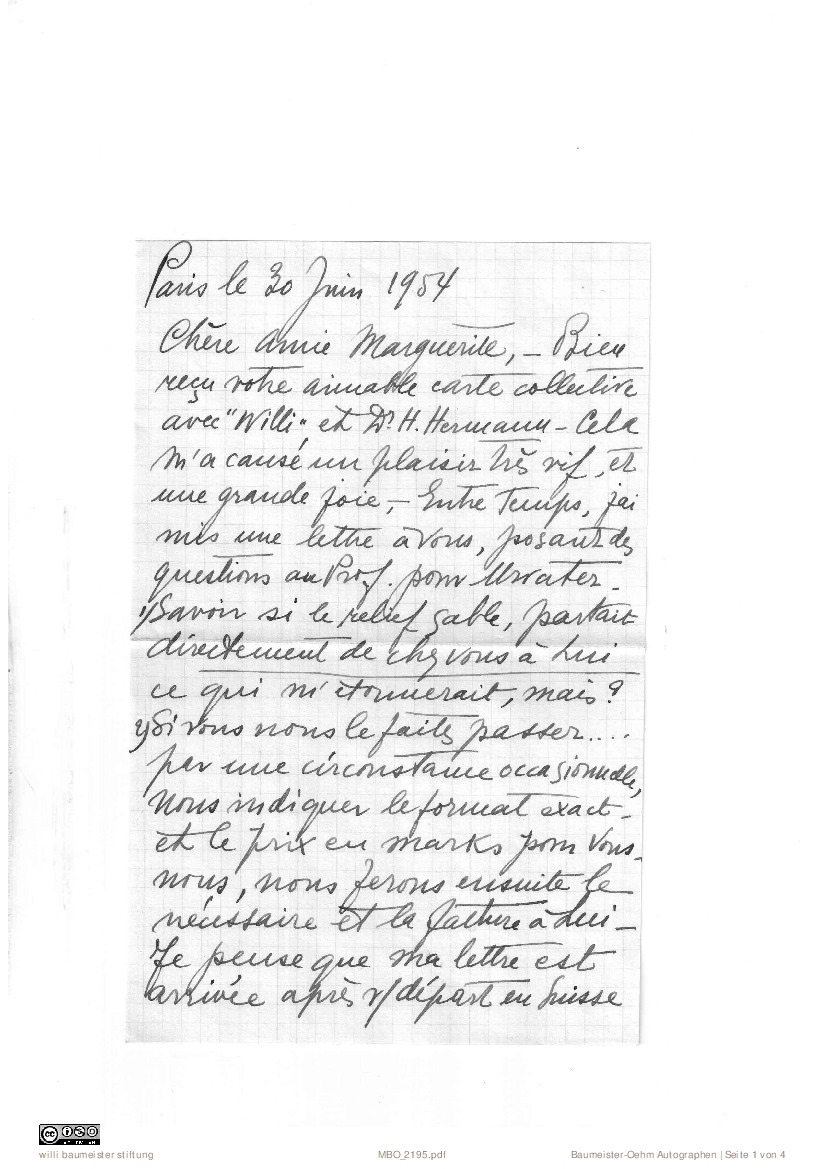 Paris le 30 Juin 1954
Chère Amie Marguerite, – Bien
reçu votre aimable carte collective
avec "Willi" et Dr. H. Hermann – Cela
m'a causé un plaisir très vif, et
une grande joie, – Entre Temps, j'ai
mis une lettre à vous, posant des
questions au Prof. pour Urvater.
1/ Savoir si le relief sable, partait
directement de chez vous à Lui
ce qui m'étonnerait, mais ?
2/ Si vous nous le faites passer....
par une circonstance occasionnelle,
nous indiquer le format exact –
et le prix en marks pour vous –
nous, nous ferons ensuite le
nécessaire et la facture à Lui –
Je pense que ma lettre est
arrivée après v/ départ en Suisse
willi baumeister stiftung
MBO_2195.pdf
Baumeister-Oehm Autographen | Seite 1 von 4